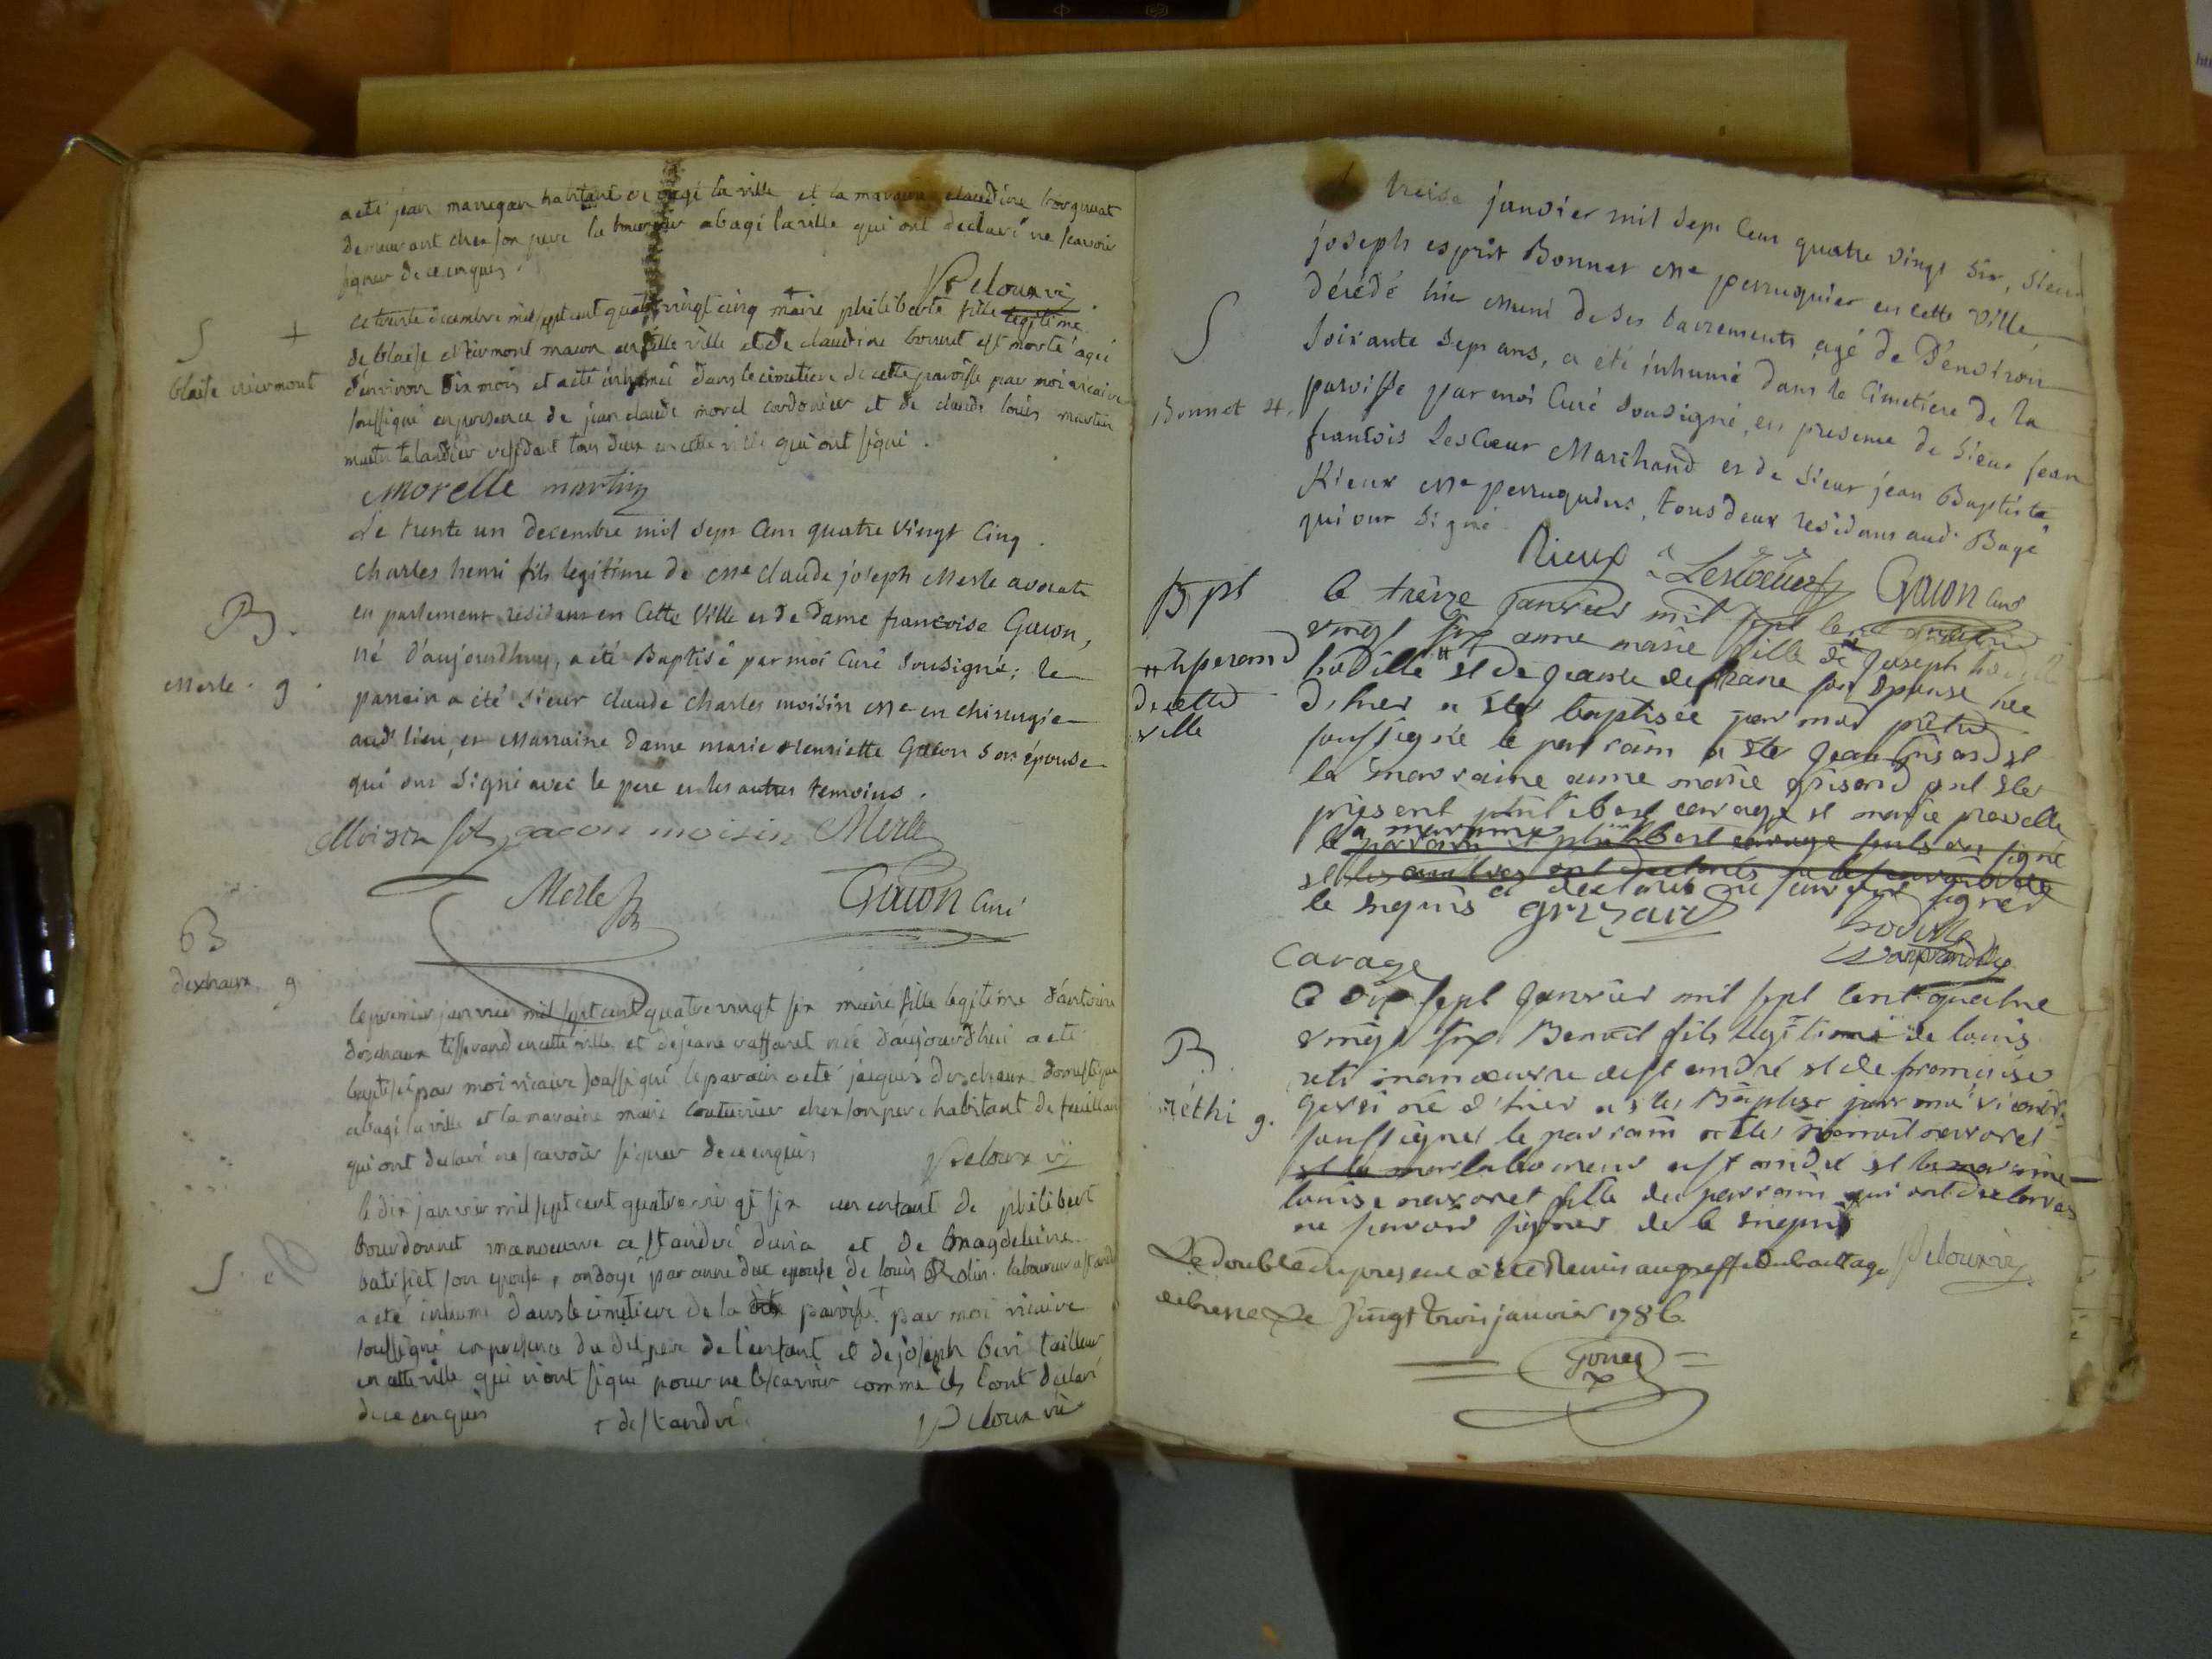 a eté jean manegan habitant de bagé la ville et la maraine claudine
demeurant chez son pere la bourg a bagé la ville qui ont declaré ne scavoir
signer de ce enquis.
Peloux vic
S +
blaise niermont
ce trente decembre mil sept cent quatre vingt cinq marie philiberte fille legitime
de blaise niermont macon en cette ville et de claudine bonnet est morte agée
d'environ dix mois et a eté inhumée dans le cimetiere de cette paroisse par moi vicaire
soussigné en presence de jean claude morel cordonier et de claude louis martin
maitre taландier residant tous deux en cette ville qui ont signé.
Morelle martin
B.
Merle. g.
Le trente un decembre mil sept cent quatre vingt cinq.
charles henri fils legitime de me claude joseph Merle avocat
en parlement residant en cette ville et de dame francoise Gacon,
né d'aujourdhuy, a été Baptisé par moi Curé sousigné; le
parrain a été sieur claude charles moisin me en chirurgie
aud. lieu, et Marraine dame marie henriette Gacon son épouse
qui ont signé avec le pere et les autres temoins.
Moisin gacon moisin Merle
Merle Gacon curé
B
deschaux g
le premier janvier mil sept cent quatre vingt six marie fille legitime d'antoine
deschaux tisserand en cette ville et de jeane vaffaret née d'aujourd'hui a eté
baptisée par moi vicaire soussigné le parain a eté jacques deschaux domestique
a bagé la ville et la maraine marie couturier chez son pere habitant de feuillan
qui ont declaré ne scavoir signer de ce enquis
Peloux vic
S.
le dix janvier mil sept cent quatre vingt six un enfant de philibert
bourdonnet manoeuvre a st andré et de magdeleine
son epouse, ondoyé par anne duc epouse de louis Rolin laboureur a st andré
a eté inhumé dans le cimetiere de la paroisse + par moi vicaire
soussigné en presence du dit pere de l'enfant et de joseph beri tailleur
en cette ville qui n'ont signé pour ne le scavoir comme ils l'ont declaré
de ce enquis + de st andré Peloux vic
S
Bonnet 4.
treize janvier mil sept cent quatre vingt six, sieur
joseph esprit Bonnet me perruquier en cette ville,
décédé hier muni de ses sacrements agé de d'environ
soixante sept ans, a été inhumé dans le Cimetiere de la
paroisse par moi Curé sousigné, en presence de sieur jean
francois Lescoeur Marchand et de sieur jean Baptiste
Rieux me perruquier, tous deux residans aud. Bagé
qui ont signé.
Rieux Lescoeur Gacon curé
Bpt
# tisserand
de cette
ville
le treize janvier mil sept cent quatre
vingt six anne marie fille de joseph
hodille # et de jeanne son epouse née
d'hier a eté baptisée par moi prêtre
soussigné le parrain a eté jean grisard et
la marraine anne marie grisard ont eté
présent philibert carage et marie
la marraine
le parrain et philibert carage seuls ont signé
et les autres ont declarés ne le scavoir de
le enquis a declaré ne scavoir signer
grizard hodille
carage
B
réthi g.
le dix sept janvier mil sept cent quatre
vingt six Benoit fils légitime de louis
reti manoeuvre a st andré et de francoise
né d'hier a eté Baptisé par moi vicaire
soussigné le parrain a eté Benoit navoret
et la mar laboureur a st andré et la marraine
louise navoret fille du parrain qui ont declarés
ne savoir signer de le enquis
Peloux vic
Le double du present a été Remis au greffe du bailliage
de bresse Le Vingt trois janvier 1786.